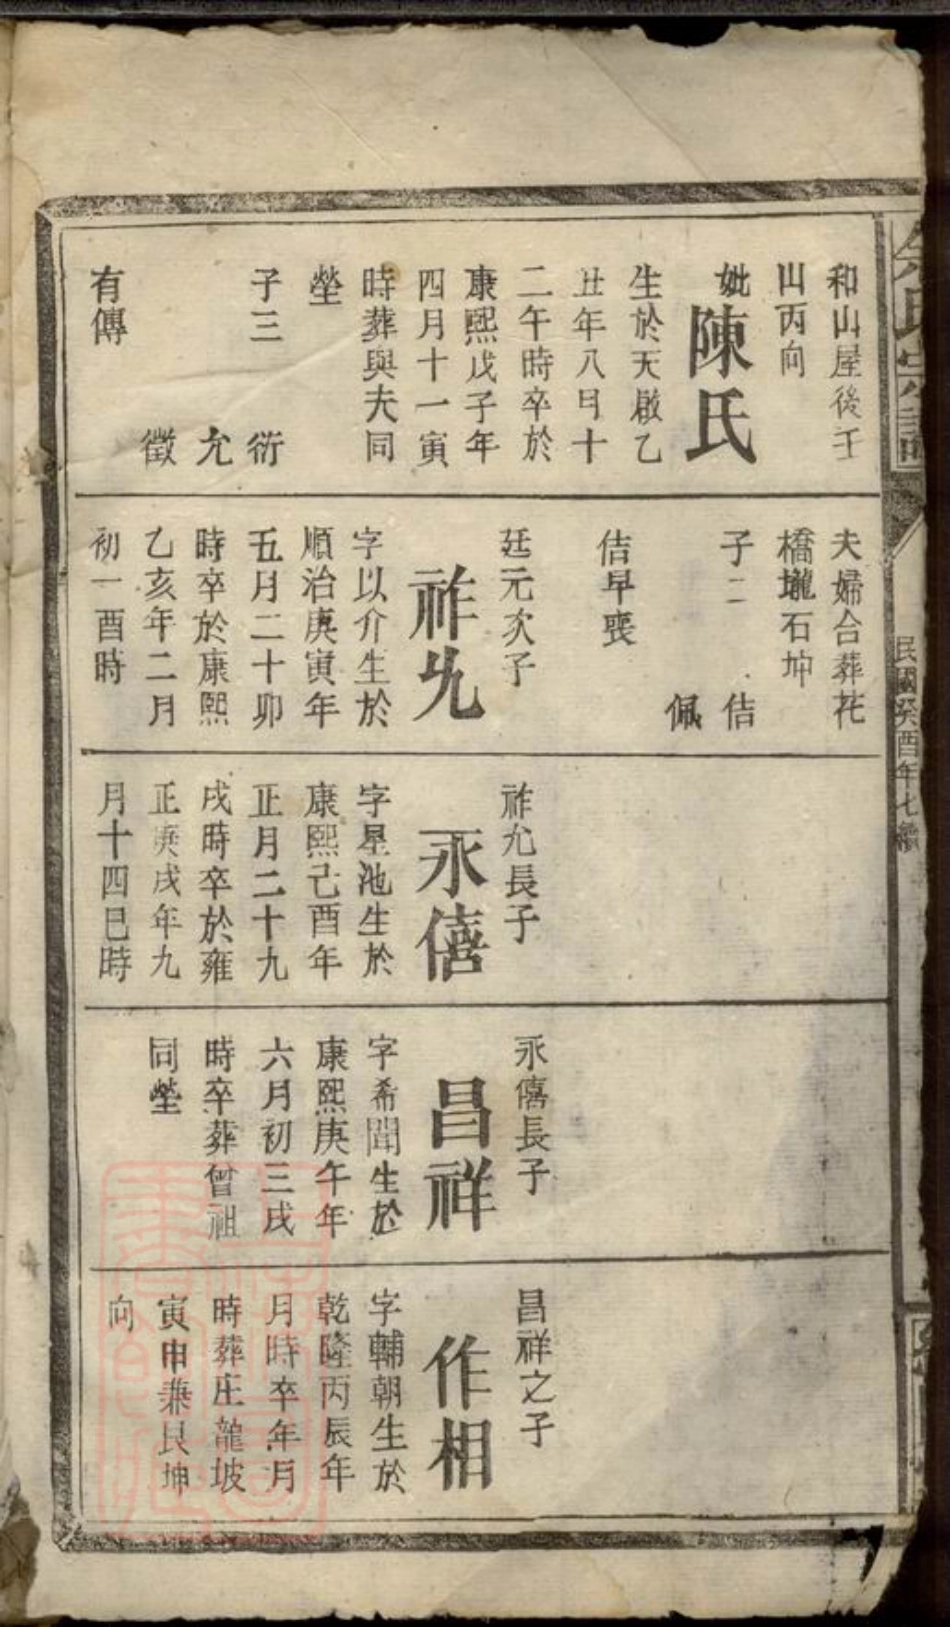 氏宗譜
民國癸酉年七續
和山屋後壬
山丙向
妣陳氏
生於天啟乙
丑年八月十
二午時卒於
康熙戊子年
四月十一寅
時葬與夫同
塋
子三 衍
允
徵
有傳
夫婦合葬花
橋壠石坤
子二 佶
佩
佶早喪
廷元次子
祚允
字以介生於
順治庚寅年
五月二十卯
時卒於康熙
乙亥年二月
初一酉時
祚允長子
永僖
字星池生於
康熙己酉年
正月二十九
戌時卒於雍
正庚戌年九
月十四巳時
永僖長子
昌祥
字希聞生於
康熙庚午年
六月初三戌
時卒葬曾祖
同塋
昌祥之子
作相
字輔朝生於
乾隆丙辰年
月時卒年月
時葬庄龍坡
寅申兼艮坤
向